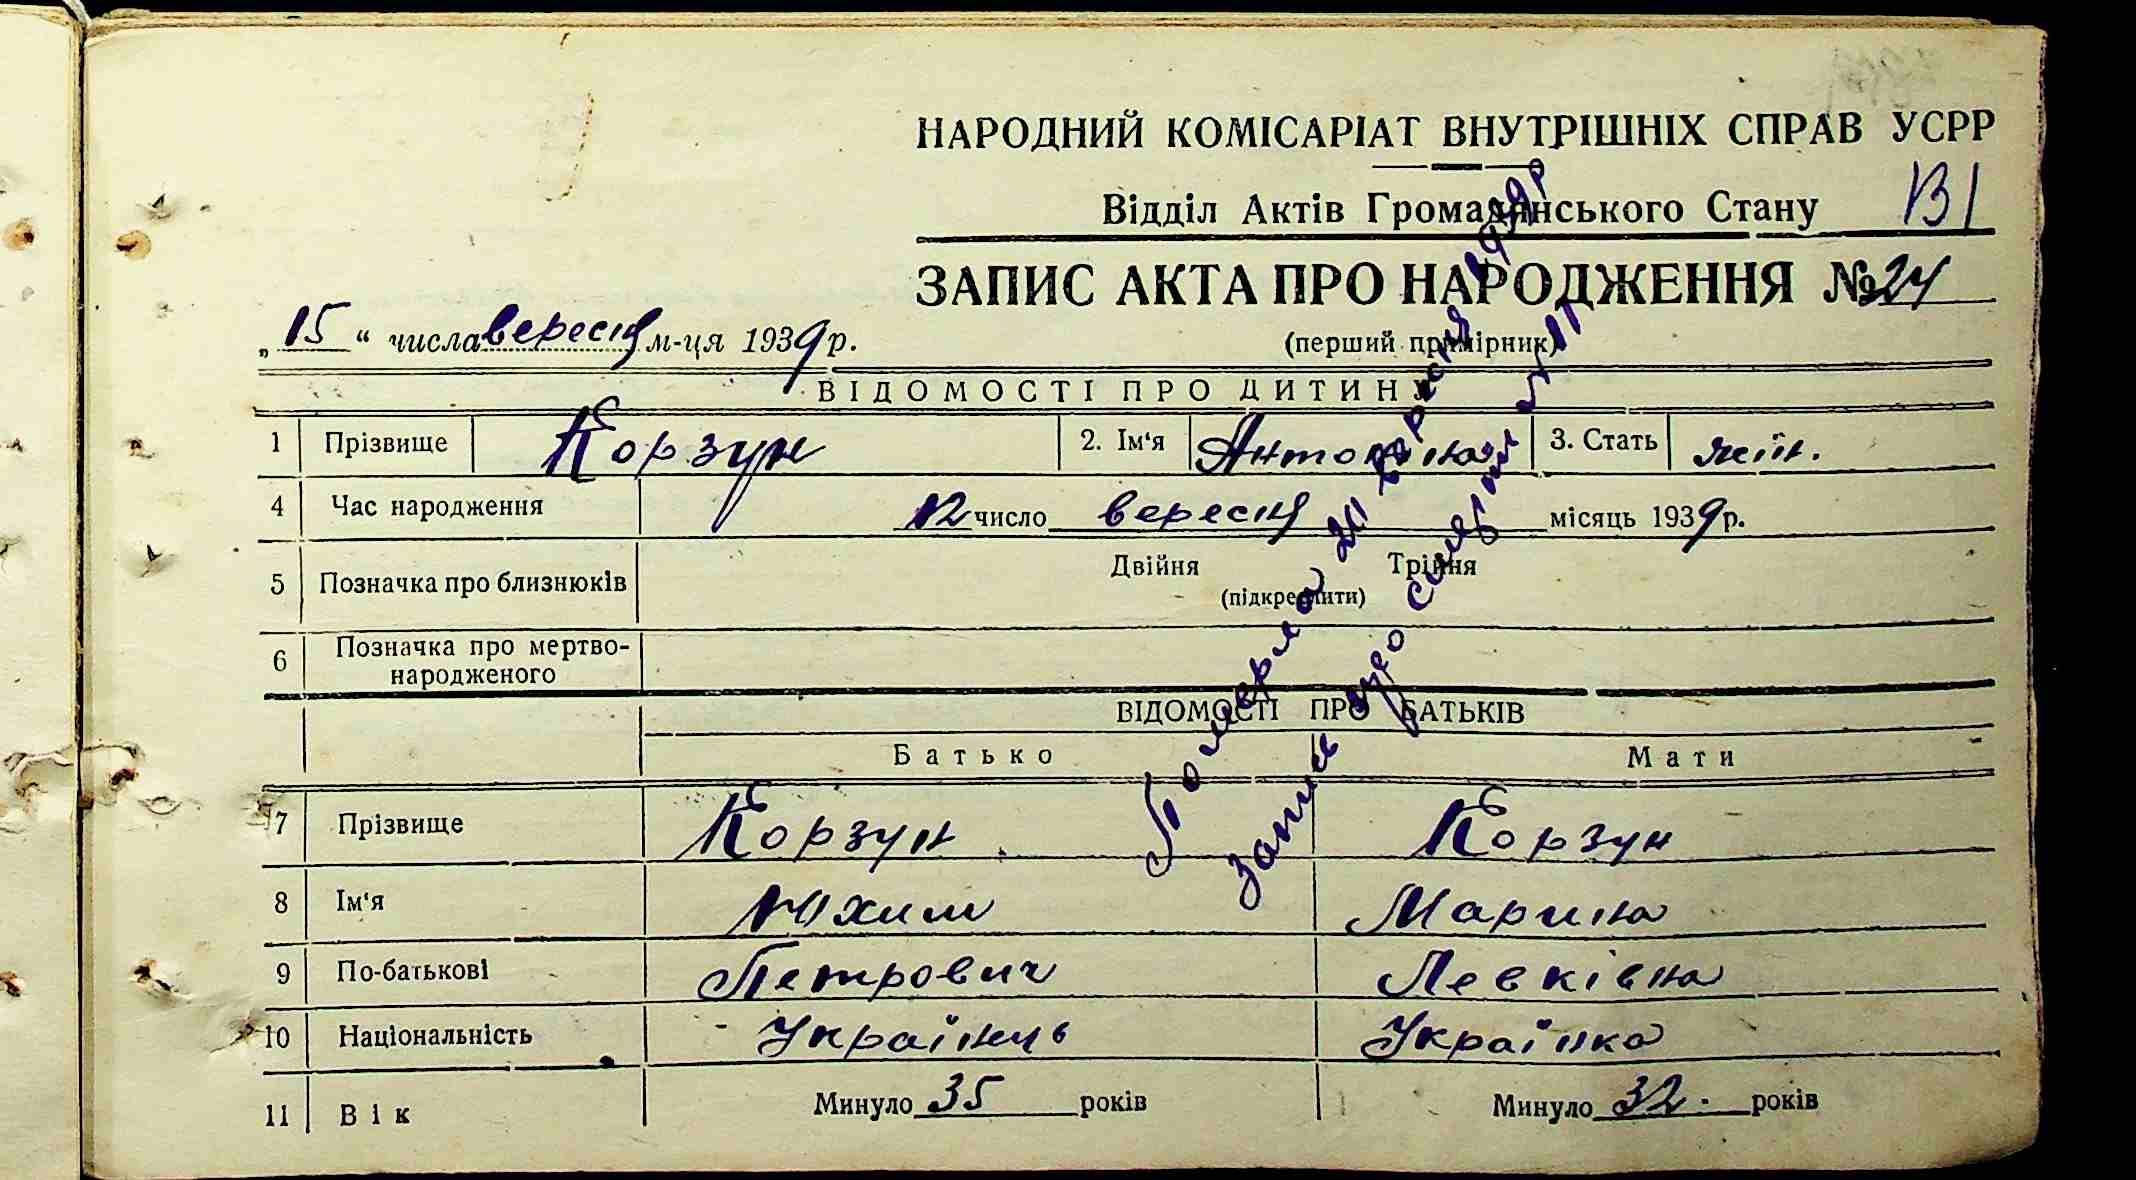 НАРОДНИЙ КОМІСАРІАТ ВНУТРІШНІХ СПРАВ УСРР
Відділ Актів Громадянського Стану ІЗІ
ЗАПИС АКТА ПРО НАРОДЖЕННЯ № 24
„ 15 “ числа вересня м-ця 1939 р. (перший примірник)
ВІДОМОСТІ ПРО ДИТИНУ
1 Прізвище Корзун 2. Ім'я Антоніна 3. Стать жін.
4 Час народження 12 число вересня місяць 1939 р.
5 Позначка про близнюків Двійня Трійня
(підкреслити)
6 Позначка про мертво-
народженого
ВІДОМОСТІ ПРО БАТЬКІВ
Батько Мати
7 Прізвище Корзун Корзун
8 Ім'я Юхим Марина
9 По-батькові Петрович Левківна
10 Національність Українець Українка
11 Вік Минуло 35 років Минуло 32. років
Померла 20 вересня 1939 р
Запис про смерть № 11